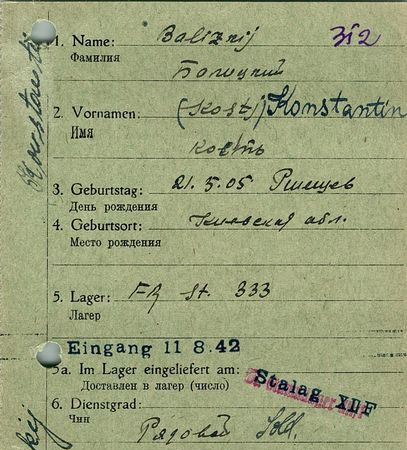 1. Name: Baliznij 312
Фамилия
Болицкий
2. Vornamen: (Kostj) Konstantin
Имя
Кость
3. Geburtstag: 21. 5. 05
День рождения
4. Geburtsort: Киевская обл.
Место рождения
5. Lager: St. 333
Лагер
Eingang 11 8. 42
5a. Im Lager eingeliefert am:
Доставлен в лагер (число)
Stalag XII F
6. Dienstgrad: Рядовой
Чин
Konstantin